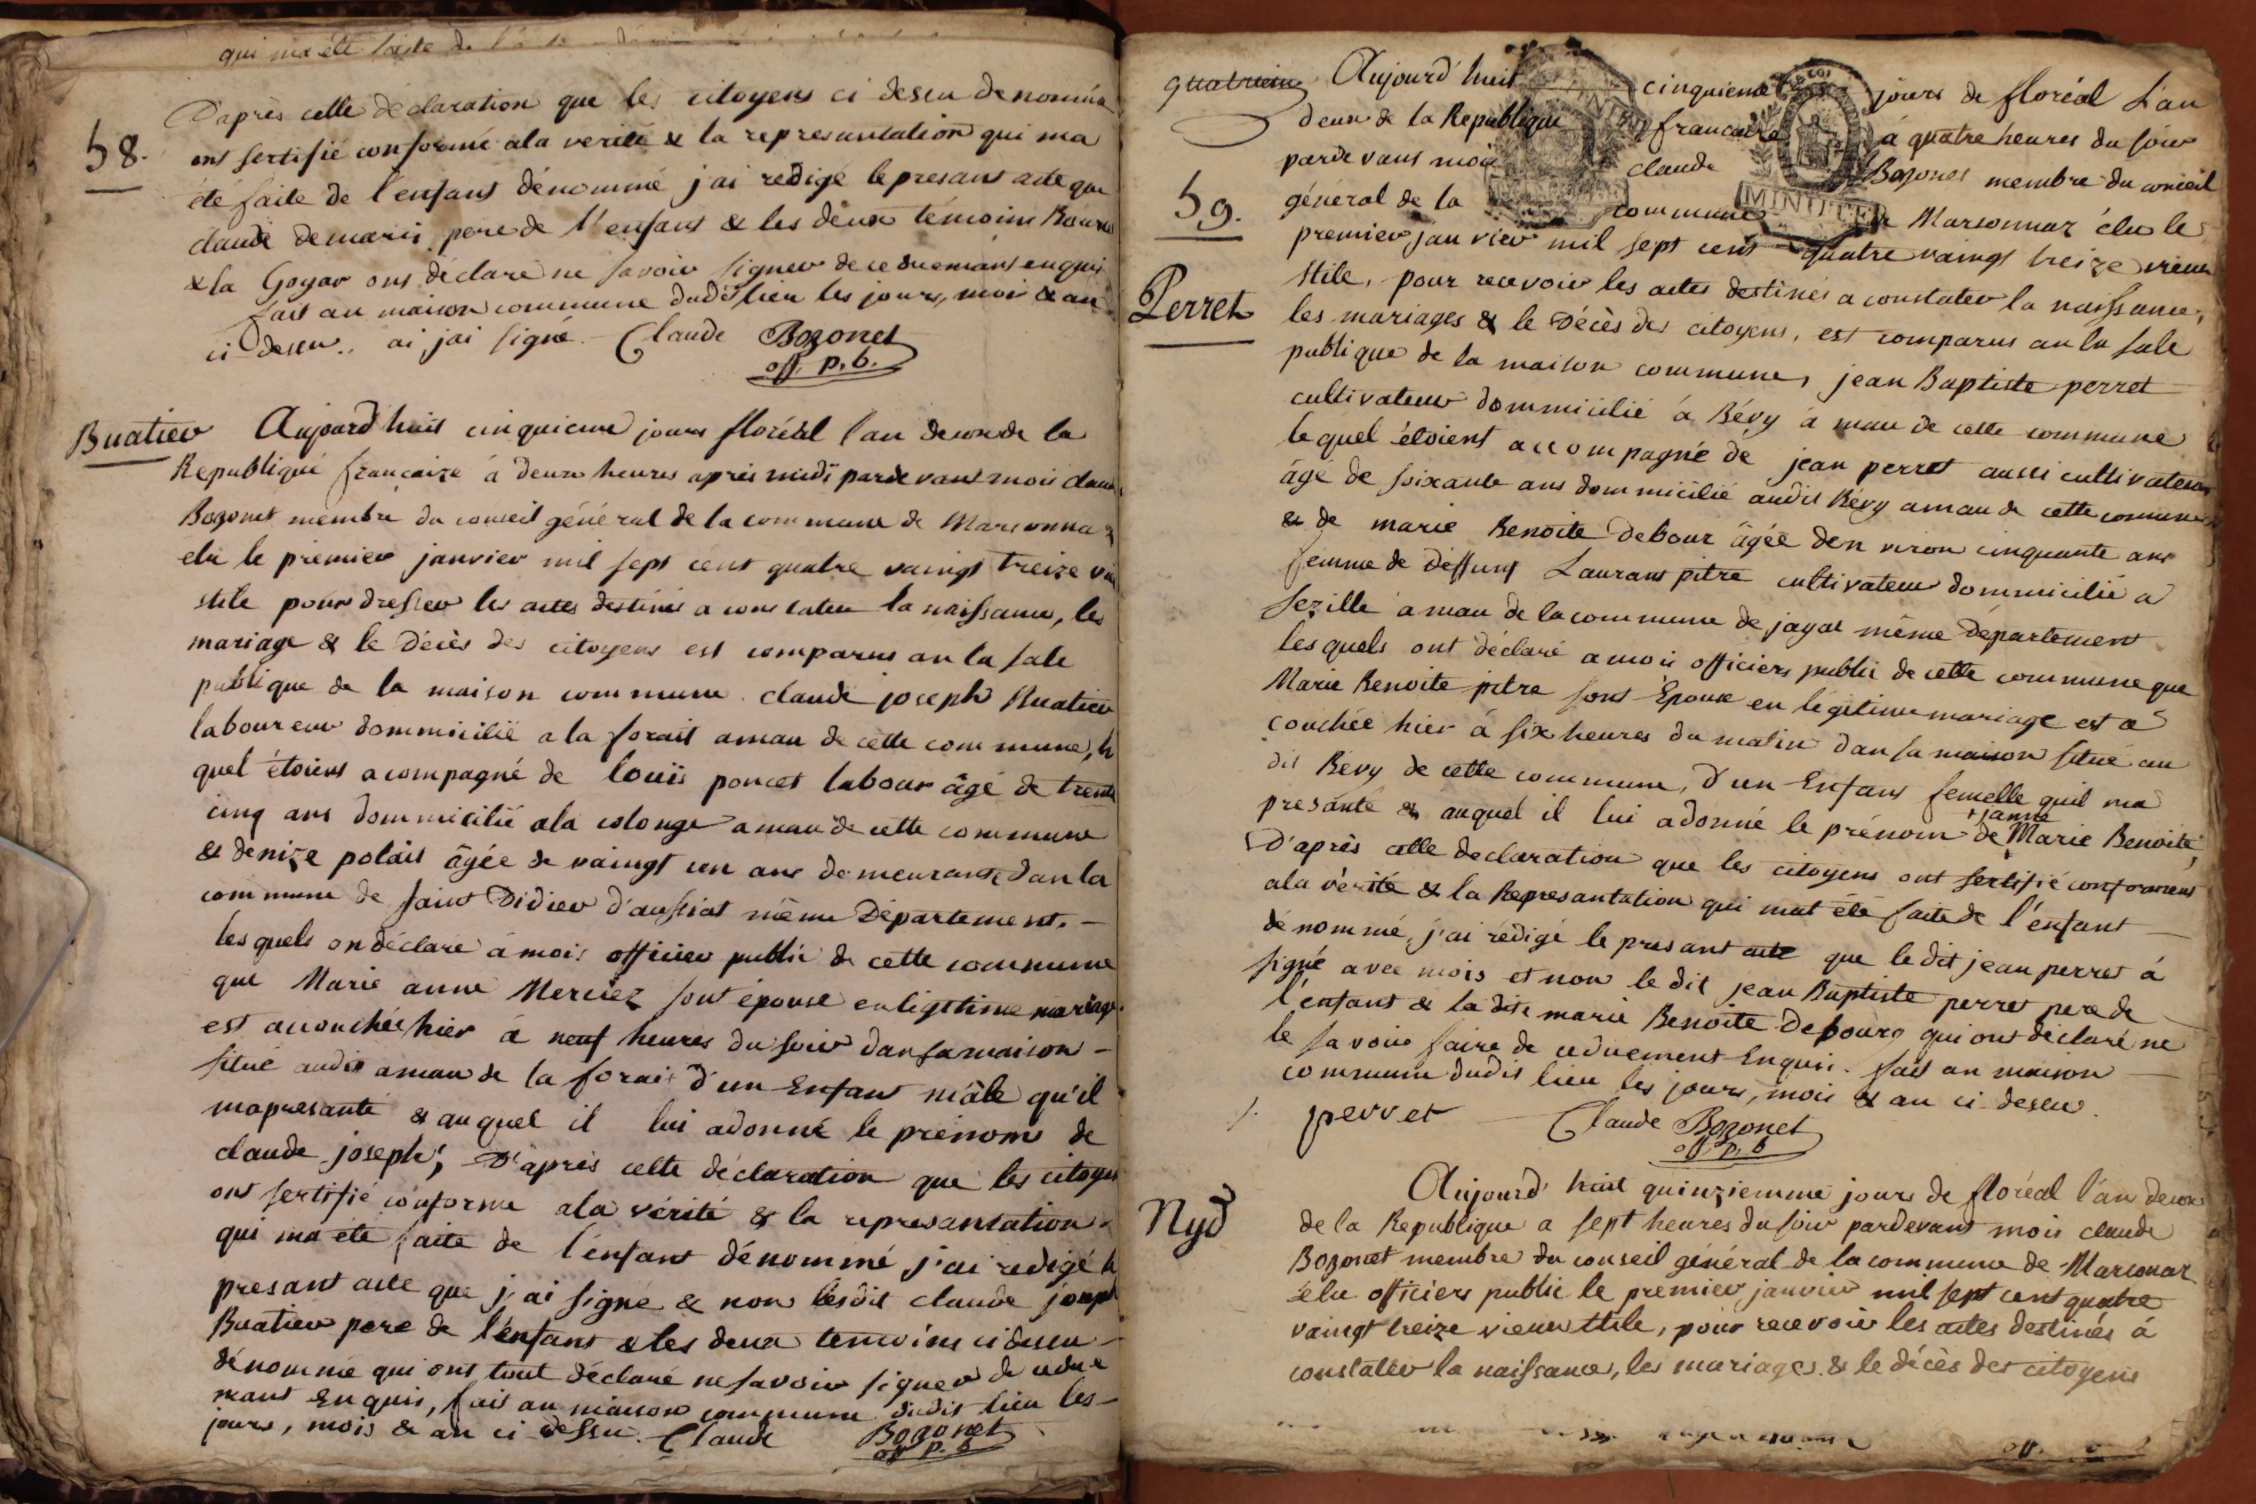 qui ma été faite de
D'après cette déclaration que les citoyens ci deseu denommés
58.
ont sertifié conforme ala verité & la represantation qui ma
été faite de l'enfant dénommé j'ai redigé le presant acte que
claude demaris pere de l'enfant & les deux témoins
& la Goyar ons déclaré ne savoir signer de ce duemant enquis
fait au maison commune dudis lieu les jours, mois & an
ci deseu. ai jai signé Claude Bozonet
off. p. b.
Buatier Aujourd'huit cinquieme jours floréal l'an deux de la
Republique francaize à deux heures après midi pardevant mois claude
Bozonet membre du conseil général de la commune de Marsonna
elu le premier janvier mil sept cent quatre vaingt treize
stile pour dresser les actes destinés a constater la naissance, les
mariage & le Décès des citoyens est comparus an la sale
publique de la maison commune claude joseph Buatier
laboureur dommicilié a la forait amau de cette commune, le
quel étoient acompagné de louis poncet labour âgé de trente
cinq ans dommicilié ala colonge amau de cette commune
& denize polais âgée de vaingt un ans demeurante dan la
commune de saint Didier d'aussiat même Département.
les quels on déclaré à mois officier public de cette commune
que Marie anne Merciez sont épouse en ligitime mariage
est acouchée hier à neuf heures du soir dan sa maison
situé audis amau de la forait d'un Enfant mâle qu'il
mapresanté & auquel il lui adonné le prénom de
claude joseph, D'après cette déclaration que les citoyens
ont sertifié conforme ala vérité & la represantation
qui ma été faite de l'enfant dénommé j'ai redigé le
presant acte que j'ai signé & non lesdit claude joseph
Buatier pere de l'enfant & les deux temoins ci deseu
dénommé qui ont tout déclaré ne savoir signer de cedue
mant Enquis, fait au maison commune dudit lieu les
jours, mois & an ci dessu. Claude Bozonet
off p. b
quatriem Aujourd'huit cinquieme jours de floréal L'an
deux de la Republique francaize à quatre heures du soir
pardevans mois claude Bozonet membre du conseil
59.
général de la commune de Marsonnaz élu le
MINUTE
premier janvier mil sept cent quatre vaingt treize vieux
Perret
stile, pour recevoir les actes destinés a constater la naissance,
les mariages & le Décès des citoyens, est comparus an la sale
publique de la maison commune, jean Baptiste perret
cultivateur dommicilié à Bévy à mau de cette commune
lequel étoient accompagné de jean perret aussi cultivateur
âgé de soixante ans dommicilié audit Bévy amau de cette commune
& de marie Benoite Debour âgée den viron cinquante ans
femme de deffunt Laurans pitre cultivateur dommicilié a
Sezille a mau de la commune de jayat même Departement
les quels ont déclaré a mois officiers public de cette commune que
Marie Benoite pitre sont Epouse en légitime mariage est a
couchée hier à six heures du matin dan sa maison situé au
dit Bévy de cette commune, d'un Enfant femelle quil ma
presanté & auquel il lui adonné le prénom de + janne Marie Benoite,
D'après cette declaration que les citoyens ont sertifié conformemt
ala vérité & la Represantation qui mat été faite de l'enfant
dénommé, j'ai rédigé le presant acte que le dit jean perret à
signé avec mois et non le dit jean Baptiste perret pere de
l'enfant & la dite marie Benoite Debourg qui ont déclaré ne
le savoir faire de ceduement Enquis. fait an maison
commune dudit lieu les jours, mois & an ci deseu.
perret Claude Bozonet
off p. b
Nyd
Aujourd'huit quinziemme jours de floréal l'an deux
de la Republique a sept heures du soir pardevant mois claude
Bozonet membre du conseil général de la commune de Marsonaz
élu officiers public le premier janvier mil sept cent quatre
vaingt treize vieux stile, pour recevoir les actes destinés à
constater la naissance, les mariages & le décès des citoyens